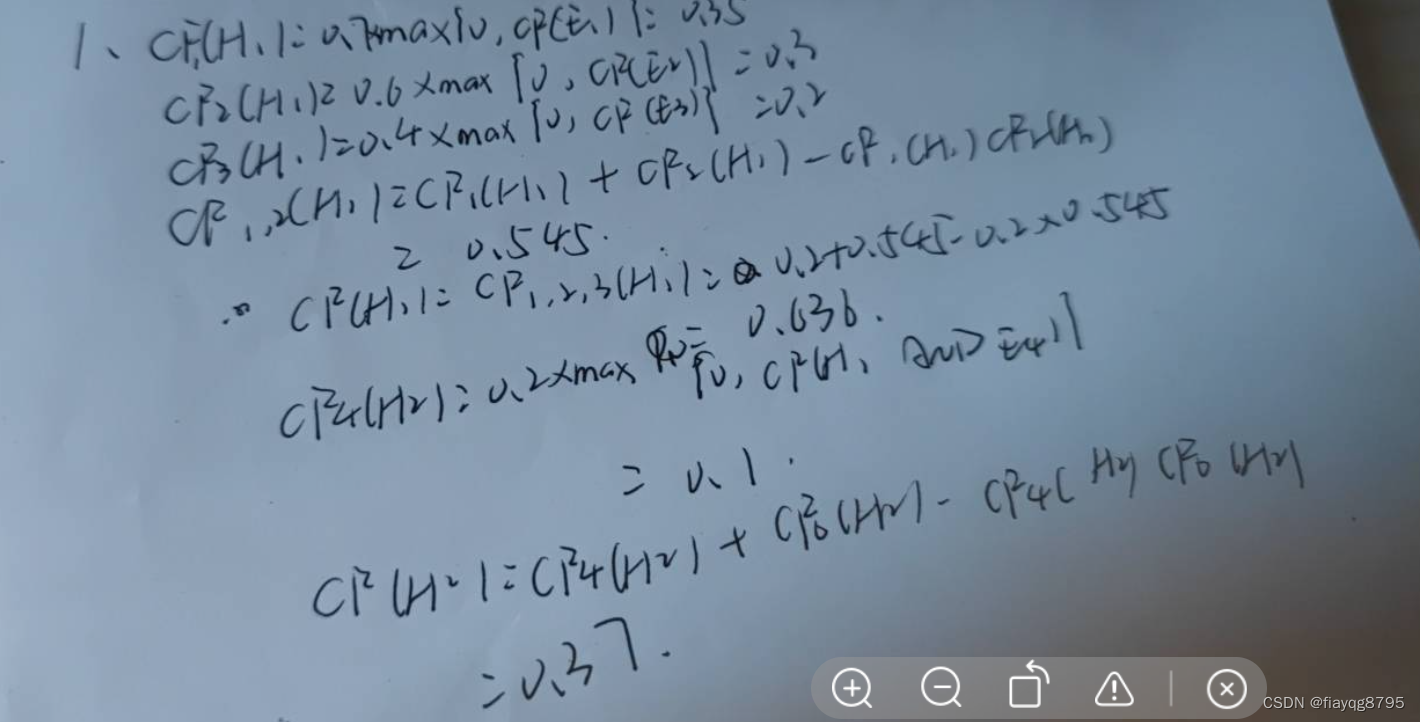 1、CF₁(H₁)=0.7×max{0,CF(E₁)}=0.35
CF₂(H₁)=0.6×max{0,CF(E₂)}=0.3
CF₃(H₁)=0.4×max{0,CF(E₃)}=0.2
CF₁,₂(H₁)=CF₁(H₁)+CF₂(H₁)-CF₁(H₁)CF₂(H₁)
=0.545.
∴ CF(H₁)=CF₁,₂,₃(H₁)=0.2+0.545-0.2×0.545
=0.636.
CF₄(H₂)=0.2×max{0,CF(H₁ AND E₄)}
=0.1.
CF(H₂)=CF₄(H₂)+CF₀(H₂)-CF₄(H₂)CF₀(H₂)
=0.37.
CSDN @fiayqg8795